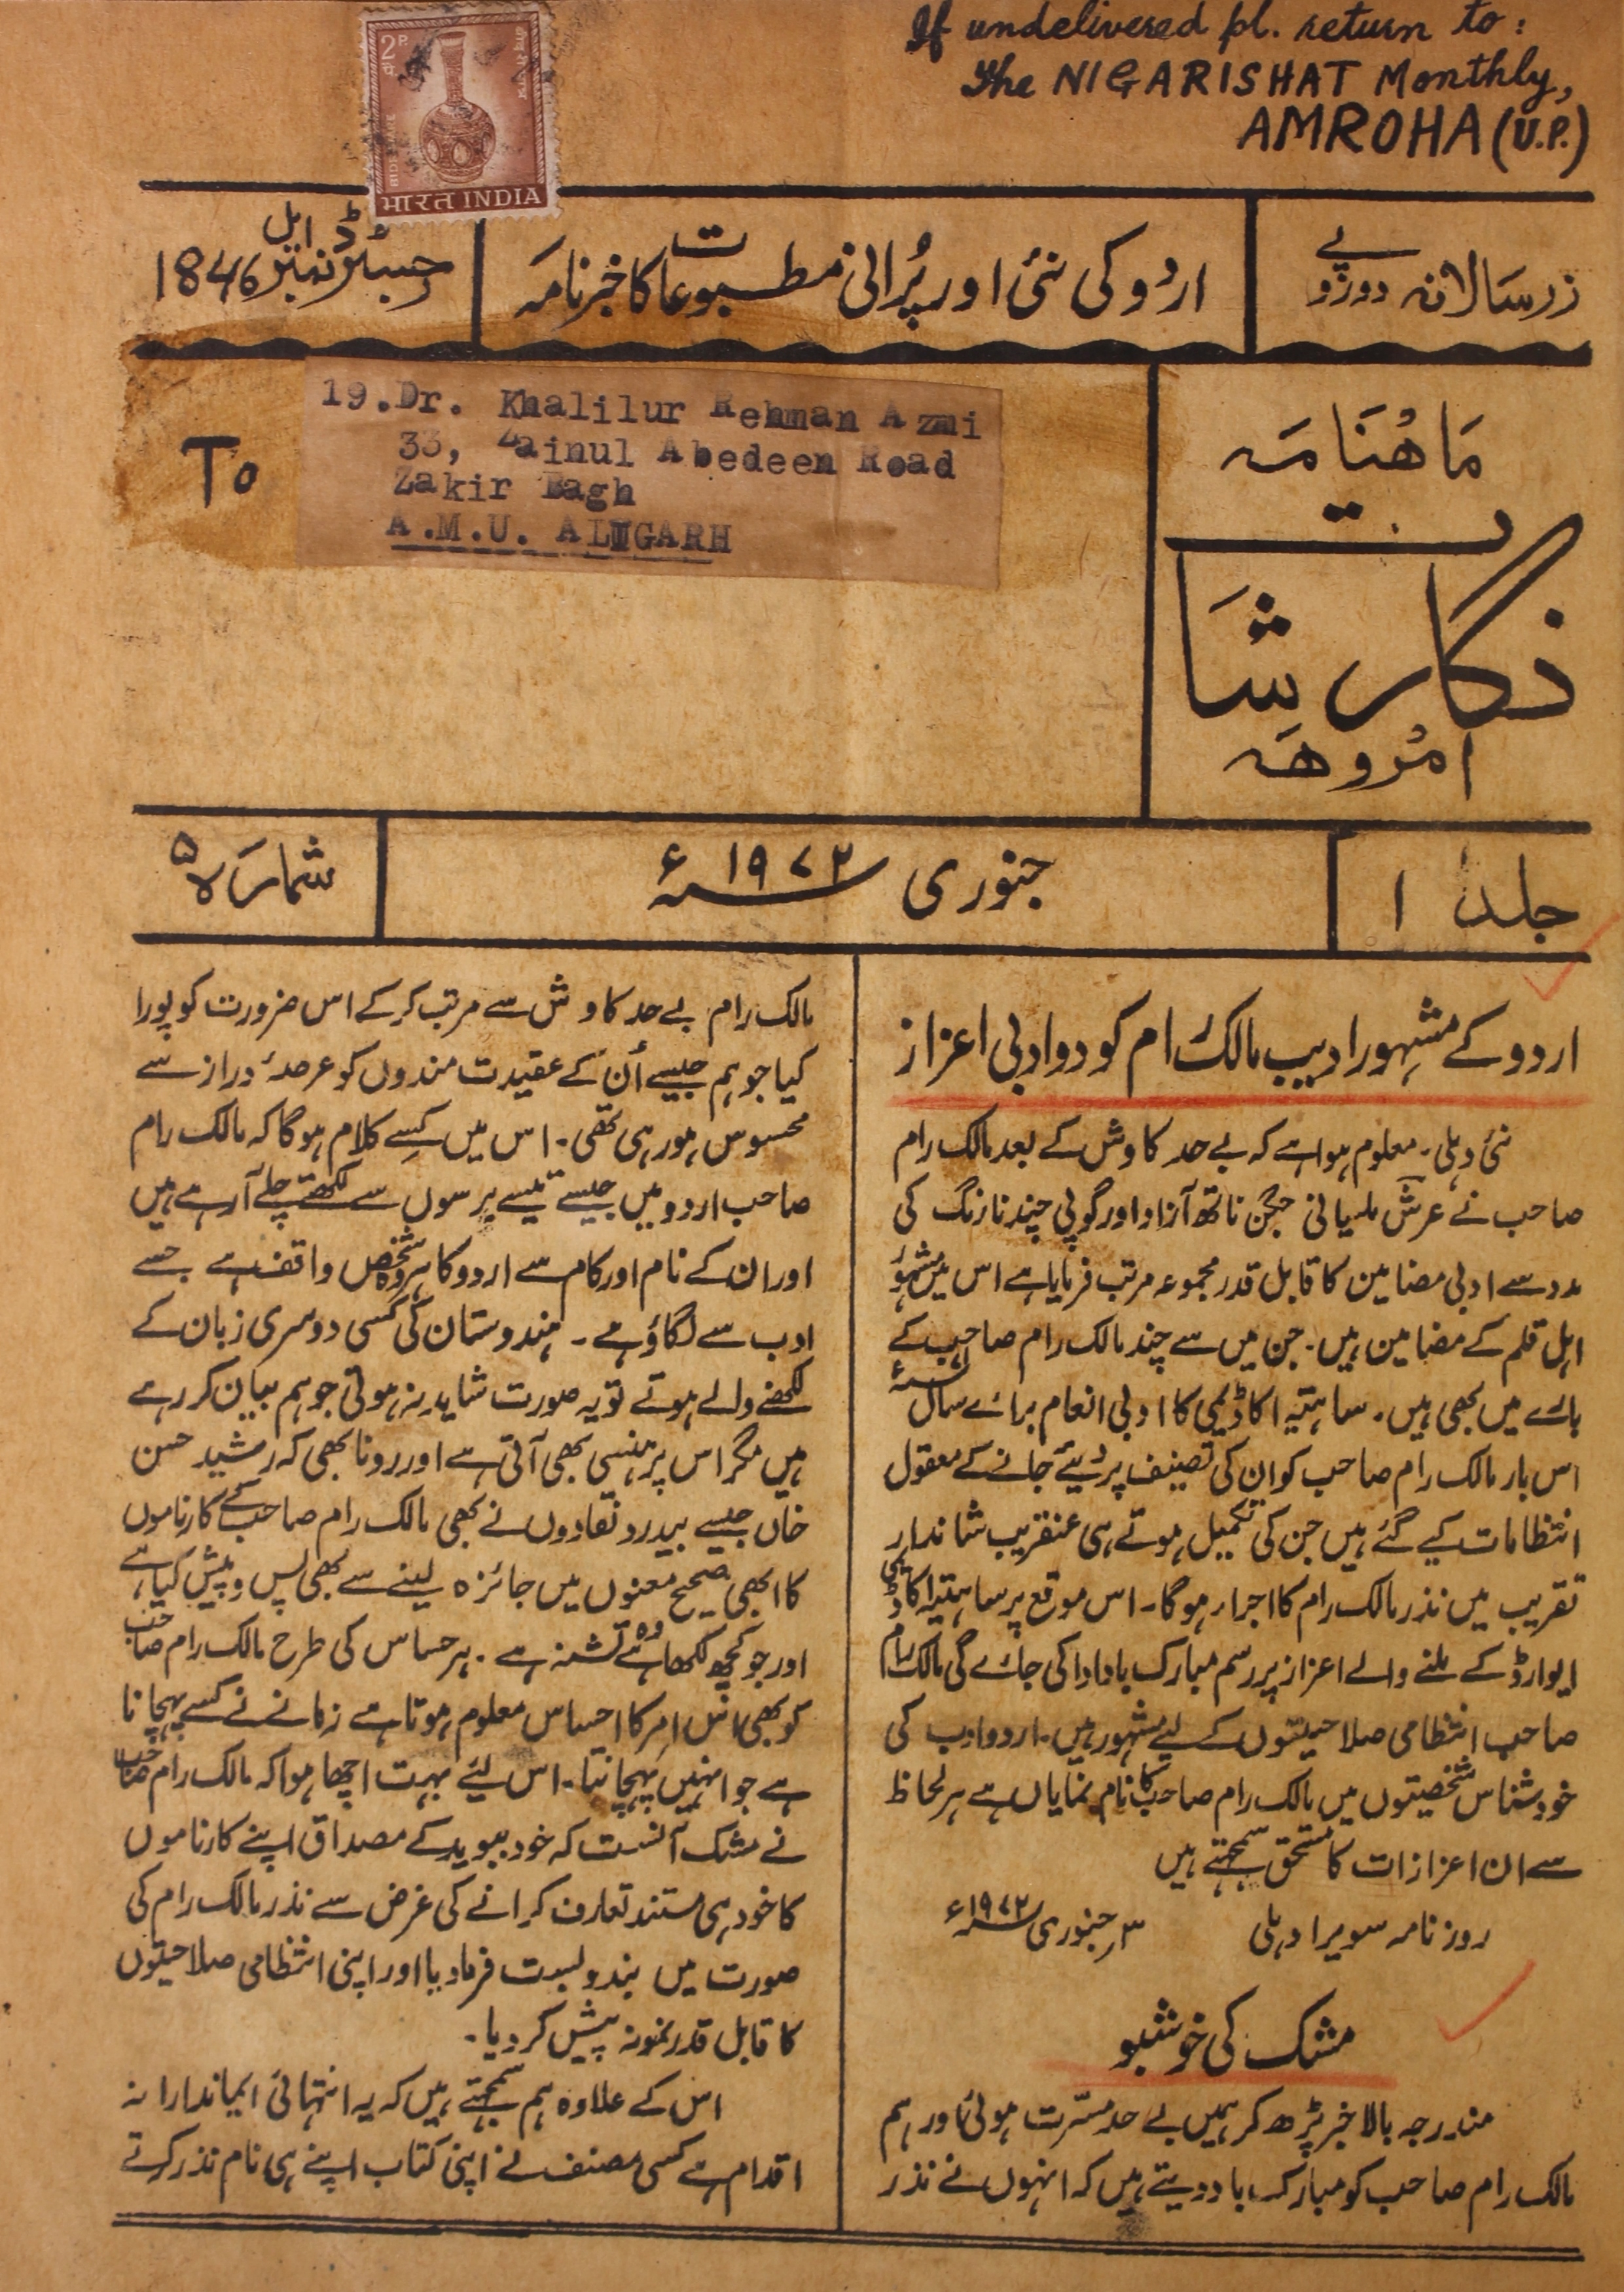 If undelivered pl. return to:
The NIGARISHAT Monthly,
AMROHA (U.P.)
2 P
भारत INDIA
زرسالانہ دوروپے
اردو کی نئی اور پُرانی مطبوعات کا خبرنامہ
رجسٹرڈ نمبر ایل 1846
To
19.Dr. Khalilur Rehman Azmi
33, Zainul Abedeen Road
Zakir Bagh
A.M.U. ALIGARH
ماہنامہ
نگارشات
امروہہ
جلد ۱
جنوری ۱۹۷۲ء
شمارہ ۵
اردو کے مشہور ادیب مالک رام کو دو ادبی اعزاز
نئی دہلی۔ معلوم ہوا ہے کہ بے حد کاوش کے بعد مالک رام
صاحب نے عرش ملسیانی جگن ناتھ آزاد اور گوپی چند نارنگ کی
مدد سے ادبی مضامین کا قابل قدر مجموعہ مرتب فرمایا ہے اس میں مشہور
اہل قلم کے مضامین ہیں۔ جن میں سے چند مالک رام صاحب کے
بارے میں بھی ہیں۔ ساہتیہ اکاڈیمی کا ادبی انعام برائے سال
اس بار مالک رام صاحب کو ان کی تصنیف پر دیئے جانے کے معقول
انتظامات کیے گئے ہیں جن کی تکمیل ہوتے ہی عنقریب شاندار
تقریب میں نذر مالک رام کا اجراء ہوگا۔ اس موقع پر ساہتیہ اکاڈیمی
ایوارڈ کے ملنے والے اعزاز پر رسم مبارک باد ادا کی جائے گی مالک رام
صاحب انتظامی صلاحیتوں کے لیے مشہور ہیں۔ اردو ادب کی
خود شناس شخصیتوں میں مالک رام صاحب کا نام نمایاں ہے ہر لحاظ
سے ان اعزازات کا مستحق سمجھتے ہیں
روزنامہ سویرا دہلی ۳ر جنوری ۱۹۷۲ء
مشک کی خوشبو
مندرجہ بالا خبر پڑھ کر ہمیں بے حد مسرّت ہوئی اور ہم
مالک رام صاحب کو مبارک باد دیتے ہیں کہ انہوں نے نذر
مالک رام بے حد کاوش سے مرتب کر کے اس ضرورت کو پورا
کیا جو ہم جیسے اُن کے عقیدت مندوں کو عرصۂ دراز سے
محسوس ہو رہی تھی۔ اس میں کسے کلام ہوگا کہ مالک رام
صاحب اردو میں جیسے تیسے برسوں سے لکھتے چلے آ رہے ہیں
اور ان کے نام اور کام سے اردو کا ہر وہ شخص واقف ہے جسے
ادب سے لگاؤ ہے۔ ہندوستان کی کسی دوسری زبان کے
لکھنے والے ہوتے تو یہ صورت شاید نہ ہوتی جو ہم بیان کر رہے
ہیں مگر اس پر ہنسی بھی آتی ہے اور رونا بھی کہ رشید حسن
خاں جیسے بیدرد نقادوں نے بھی مالک رام صاحب کے کارناموں
کا ابھی صحیح معنوں میں جائزہ لینے سے بھی پس و پیش کیا ہے
اور جو کچھ لکھا ہے وہ تشنہ ہے۔ ہر حساس کی طرح مالک رام صاحب
کو بھی اس امر کا احساس معلوم ہوتا ہے زمانے نے کسے پہچانا
ہے جو انہیں پہچانتا۔ اس لیئے بہت اچھا ہوا کہ مالک رام صاحب
نے مشک آنست کہ خود ببوید کے مصداق اپنے کارناموں
کا خود ہی مستند تعارف کرانے کی غرض سے نذر مالک رام کی
صورت میں بندوبست فرما دیا اور اپنی انتظامی صلاحیتوں
کا قابل قدر نمونہ پیش کر دیا۔
اس کے علاوہ ہم سمجھتے ہیں کہ یہ انتہائی ایماندارانہ
اقدام ہے کسی مصنف نے اپنی کتاب اپنے ہی نام نذر کرتے